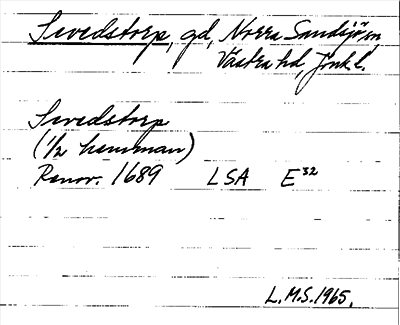 Sevedstorp, gd, Norra Sandsjö sn
Västra hd, Jönk. l.
Sevedstorp
(1/2 hemman)
Renov. 1689 LSA E³²
L.M.S. 1965.